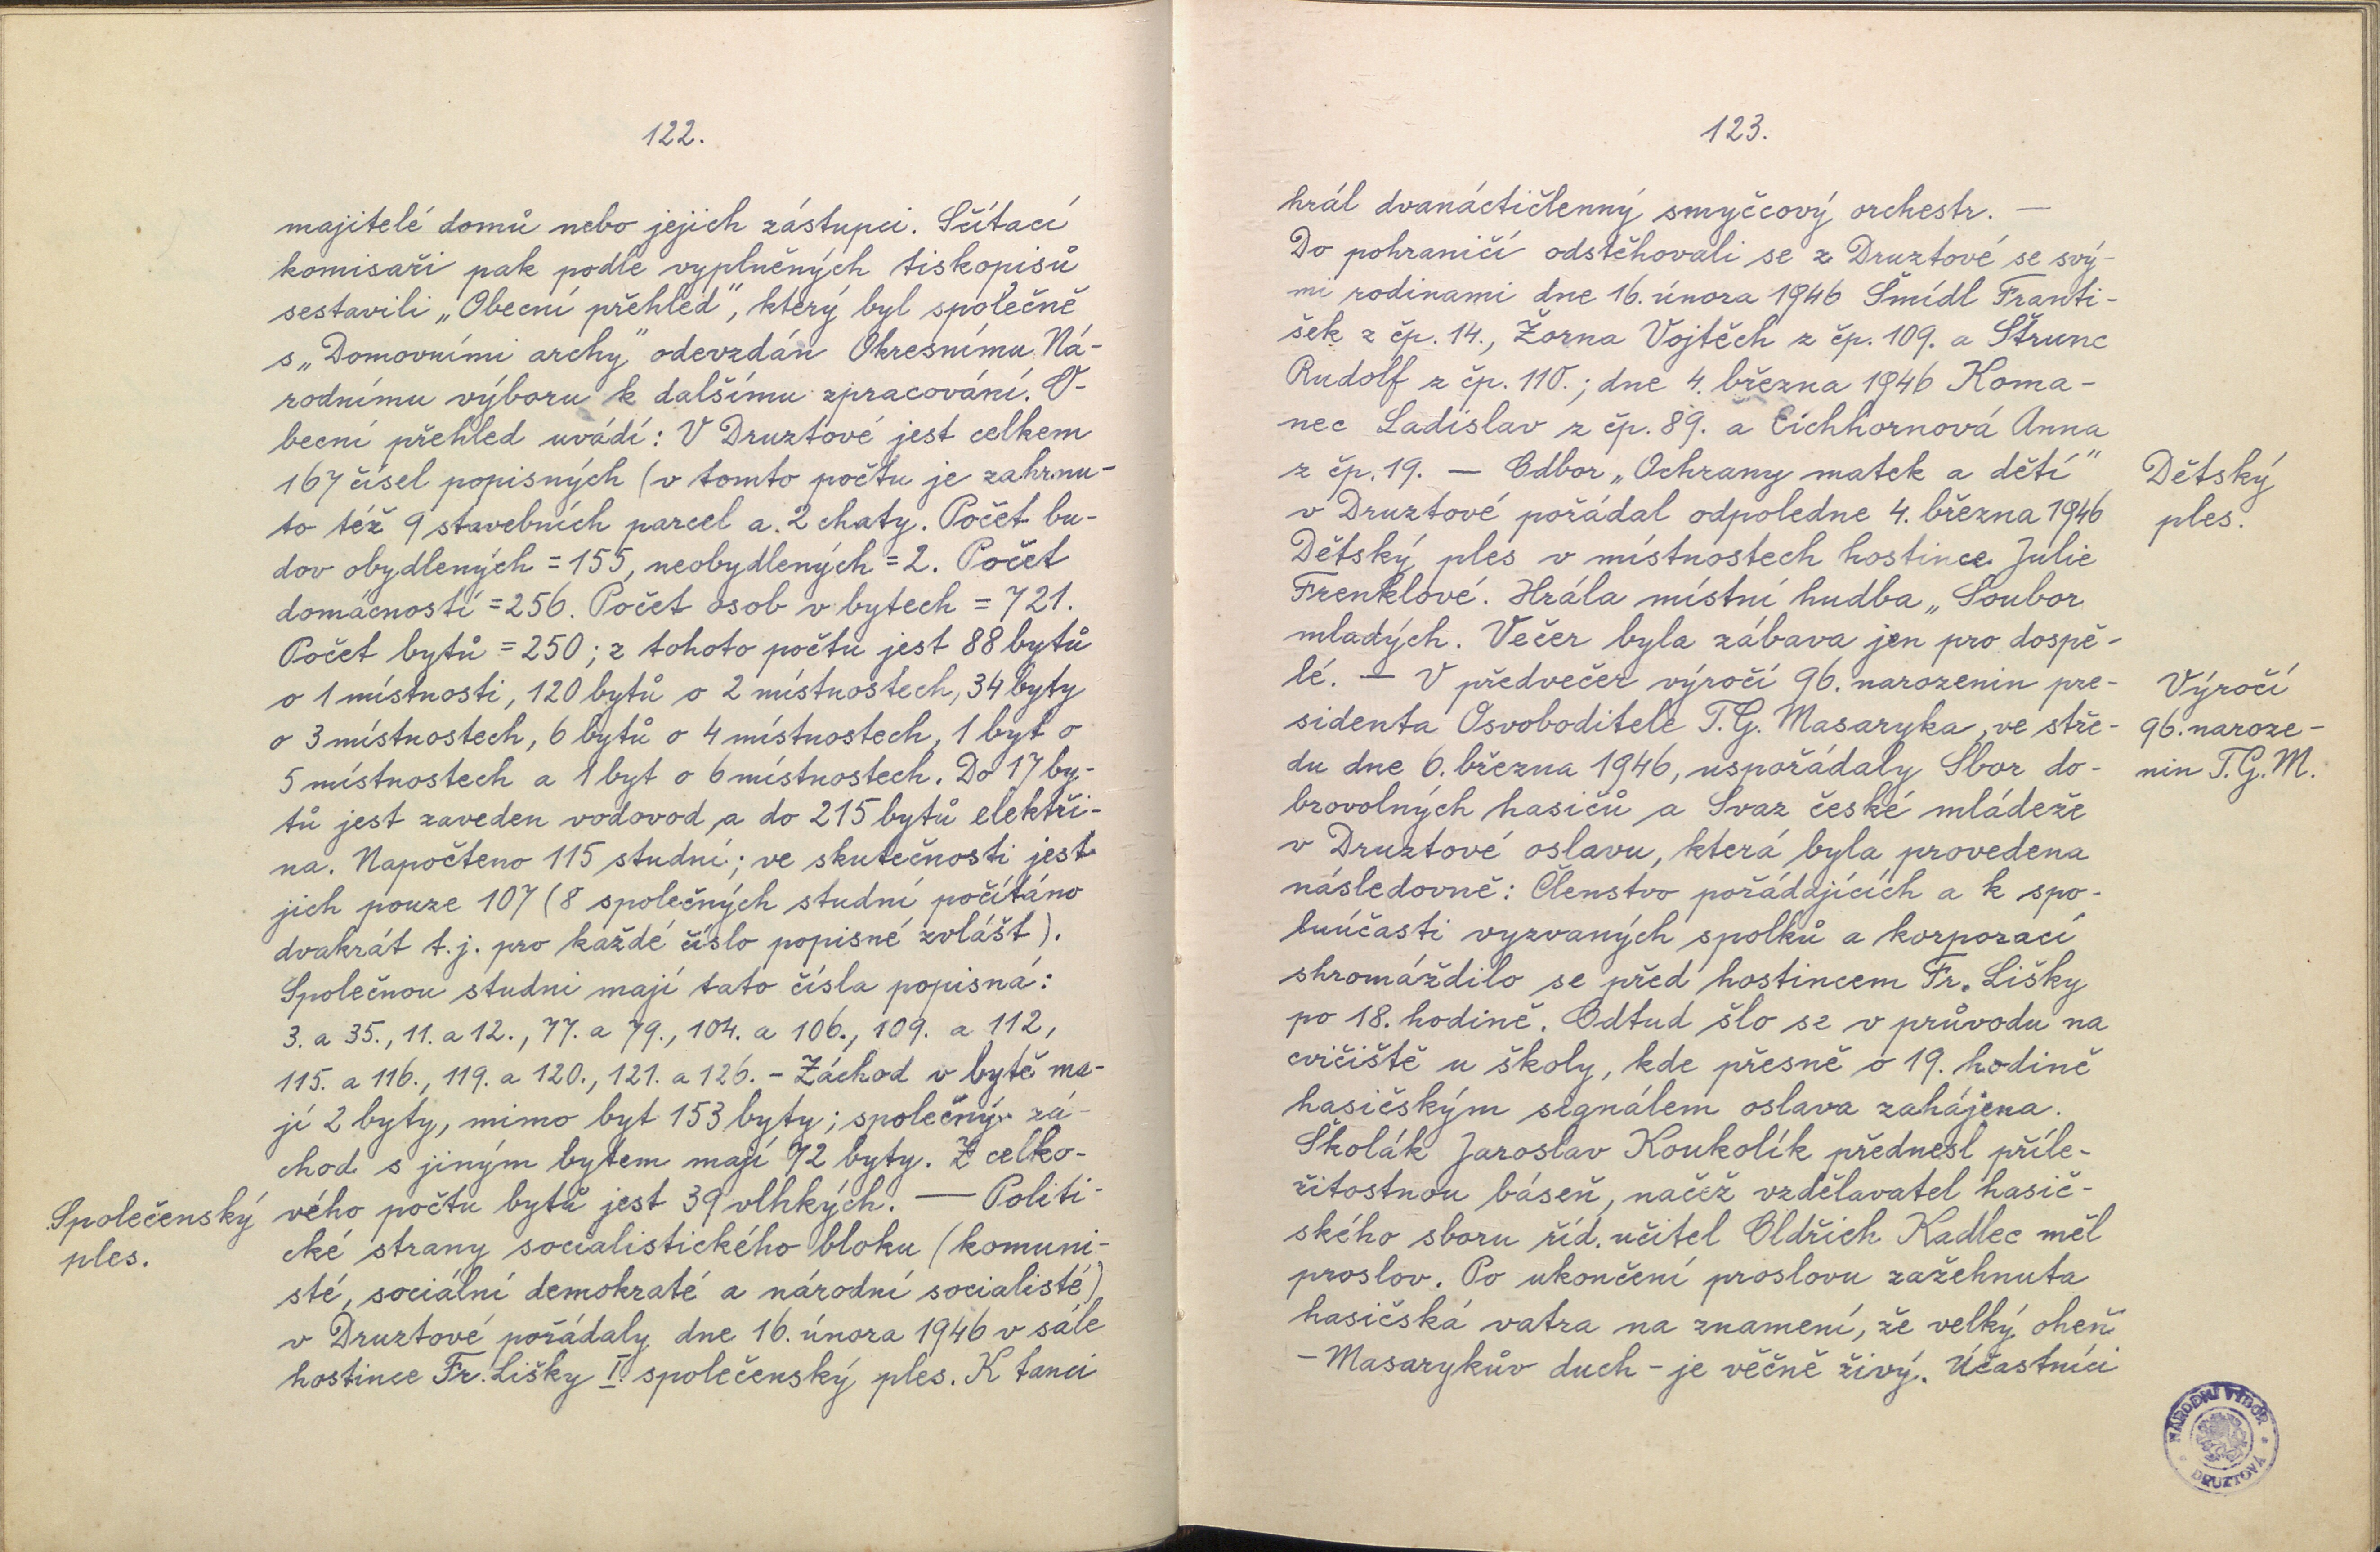 122.
majitelé domů nebo jejich zástupci. Sčítací
komisaři pak podle vyplněných tiskopisů
sestavili „Obecní přehled", který byl společně
s „Domovními archy" odevzdán Okresnímu Ná-
rodnímu výboru k dalšímu zpracování. O-
becní přehled uvádí: V Druztové jest celkem
167 čísel popisných (v tomto počtu je zahrnu-
to též 9 stavebních parcel a 2 chaty. Počet bu-
dov obydlených = 155, neobydlených = 2. Počet
domácností = 256. Počet osob v bytech = 721.
Počet bytů = 250; z tohoto počtu jest 88 bytů
o 1 místnosti, 120 bytů o 2 místnostech, 34 byty
o 3 místnostech, 6 bytů o 4 místnostech, 1 byt o
5 místnostech a 1 byt o 6 místnostech. Do 17 by-
tů jest zaveden vodovod a do 215 bytů elektři-
na. Napočteno 115 studní; ve skutečnosti jest
jich pouze 107 (8 společných studní počítáno
dvakrát t.j. pro každé číslo popisné zvlášt).
Společnou studni mají tato čísla popisná:
3. a 35., 11. a 12., 77. a 79., 104. a 106., 109. a 112,
115. a 116., 119. a 120., 121. a 126. - Záchod v bytě ma-
jí 2 byty, mimo byt 153 byty; společný zá-
chod s jiným bytem mají 72 byty. Z celko-
vého počtu bytů jest 39 vlhkých. — Politi-
Společenský
ples.
cké strany socialistického bloku (komuni-
sté, sociální demokraté a národní socialisté)
v Druztové pořádaly dne 16. února 1946 v sále
hostince Fr. Lišky I. společenský ples. K tanci
123.
hrál dvanáctičlenný smyčcový orchestr. —
Do pohraničí odstěhovali se z Druztové se svý-
mi rodinami dne 16. února 1946 Šmídl Franti-
šek z čp. 14., Žorna Vojtěch z čp. 109. a Štrunc
Rudolf z čp. 110.; dne 4. března 1946 Koma-
nec Ladislav z čp. 89. a Eichhornová Anna
z čp. 19. — Odbor „Ochrany matek a dětí"
Dětský
ples.
v Druztové pořádal odpoledne 4. března 1946
Dětský ples v místnostech hostince Julie
Frenklové. Hrála místní hudba „Soubor
mladých. Večer byla zábava jen pro dospě-
lé. — V předvečer výročí 96. narozenin pre-
Výročí
96. naroze-
nin T.G.M.
sidenta Osvoboditele T.G. Masaryka, ve stře-
du dne 6. března 1946, uspořádaly Sbor do-
brovolných hasičů a Svaz české mládeže
v Druztové oslavu, která byla provedena
následovně: Členstvo pořádajících a k spo-
luúčasti vyzvaných spolků a korporací
shromáždilo se před hostincem Fr. Lišky
po 18. hodině. Odtud šlo se v průvodu na
cvičiště u školy, kde přesně o 19. hodině
hasičským signálem oslava zahájena.
Školák Jaroslav Koukolík přednesl příle-
žitostnou báseň, načež vzdělavatel hasič-
ského sboru říd. učitel Oldřich Kadlec měl
proslov. Po ukončení proslovu zažehnuta
hasičská vatra na znamení, že velký oheň
- Masarykův duch - je věčně živý. Účastníci
NÁRODNÍ VÝBOR
DRUZTOVÁ